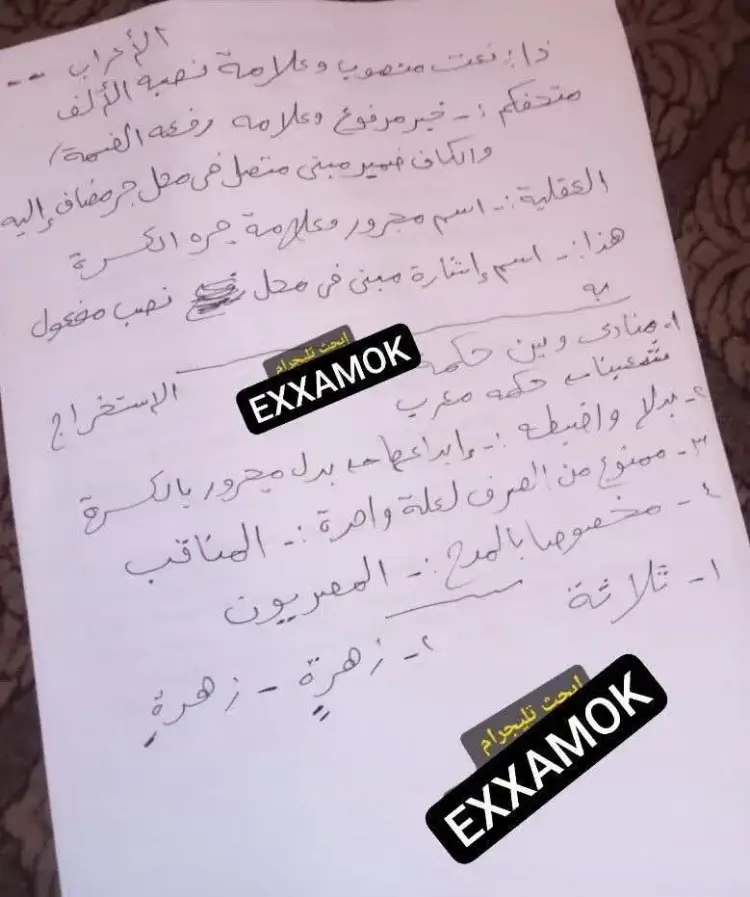 الأعراب --
ذا :- نعت منصوب وعلامة نصبه الألف
متحفكم :- خبر مرفوع وعلامه رفعه الضمة/
والكاف ضمير مبنى متصل فى محل جر مضاف إليه
العقلية :- اسم مجرور وعلامة جره الكسرة
هذا :- اسم إشارة مبنى فى محل نصب مفعول
به
١- منادى وبين حكمه
حكمه معرب
الاستخراج
ابحث تليجرام
EXXAMOK
٢- بدلا واضبطه :- وإبداعها بدل مجرور بالكسرة
٣- ممنوع من الصرف لعلة واحدة :- المناقب
٤- مخصوصا بالمدح :- المصريون
١- ثلاثة
٢- زهرةٍ - زهرةِ
ابحث تليجرام
EXXAMOK